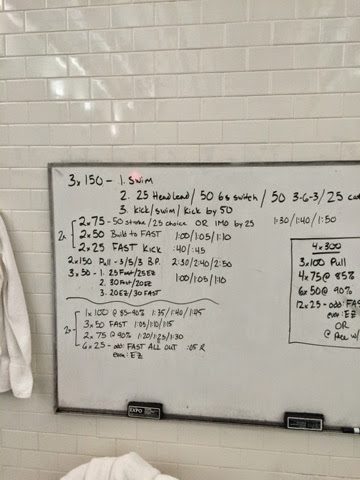 3x150 - 1. Swim
2. 25 Head Lead / 50 6s switch / 50 3-6-3 / 25
3. kick/swim/kick by 50
2x
2x75 - 50 stroke / 25 choice OR IMO by 25 1:30/1:40/1:50
2x50 Build to FAST 1:00/1:05/1:10
2x25 FAST Kick :40/:45
2x150 Pull - 3/5/3 B.P. 2:30/2:40/2:50
3x50 - 1. 25 Fast/25 EZ 1:00/1:05/1:10
2. 30 Fast/20 EZ
3. 20 EZ/30 FAST
2x
1x100 @ 85-90% 1:35/1:40/1:45
3x50 FAST 1:05/1:10/1:15
2x75 @ 90% 1:20/1:25/1:30
6x25 - odd: FAST ALL OUT :05 R
even: EZ
4x300
3x100 Pull
4x75 @ 85%
6x50 @ 90%
12x25 - odd: FAS
even: EZ
OR
@ Pace w/
EXPO